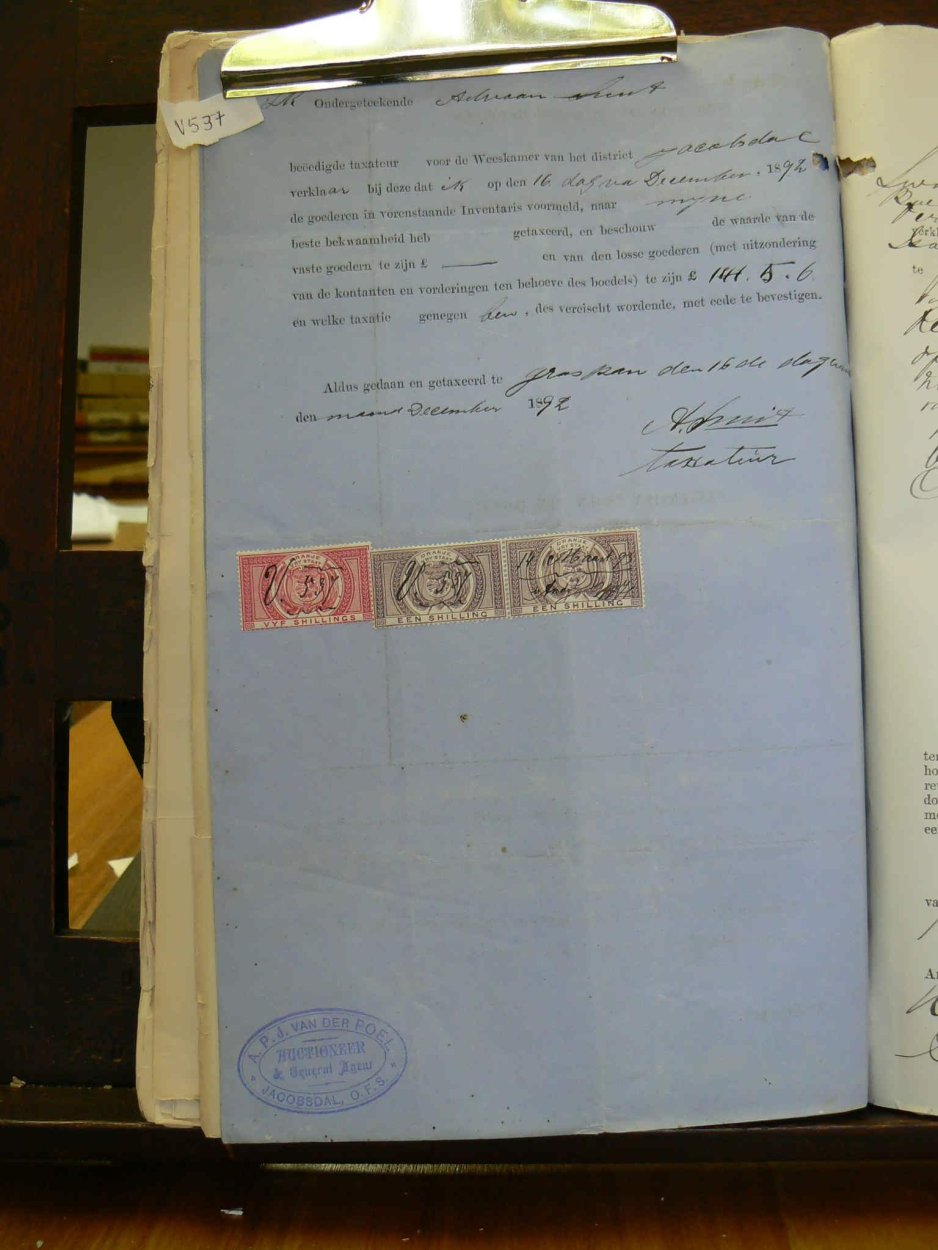 V537
Ik Ondergeteekende Adriaan Smit
beëedigde taxateur voor de Weeskamer van het district Jacobsdal
verklaar bij deze dat ik op den 16 dag va December, 1892
de goederen in vorenstaande Inventaris voormeld, naar myne
beste bekwaamheid heb getaxeerd, en beschouw de waarde van de
vaste goedern te zijn £ — en van den losse goederen (met uitzondering
van de kontanten en vorderingen ten behoeve des boedels) te zijn £ 141. 5. 6
en welke taxatie genegen ben, des vereischt wordende, met eede te bevestigen.
Aldus gedaan en getaxeerd te Graspan den 16 de dag van
den maand December 1892
A. Smit
taxateur
ORANJE VRY STAAT
V. 537
VYF SHILLINGS
ORANJE VRY STAAT
V. 537
EEN SHILLING
ORANJE VRY STAAT
EEN SHILLING
A. P. J. VAN DER POEL
AUCTIONEER
& General Agent
JACOBSDAL, O.F.S.
te
va